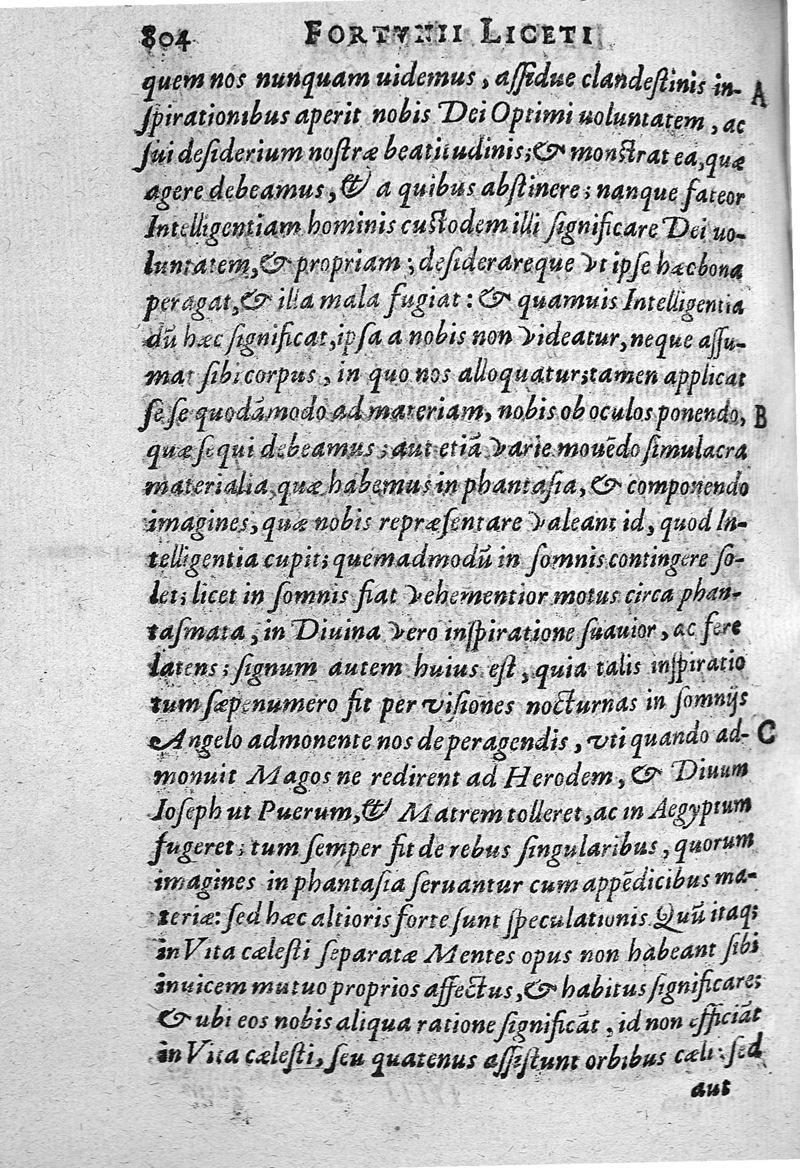 804 FORTVNII LICETI
quem nos nunquam uidemus, aſſidue clandeſtinis in-
ſpirationibus aperit nobis Dei Optimi uoluntatem, ac
ſui deſiderium noſtræ beatitudinis; & monſtrat ea, quæ
agere debeamus, & a quibus abſtinere; nanque fateor
Intelligentiam hominis cuſtodem illi ſignificare Dei uo-
luntatem, & propriam; deſiderareque vt ipſe hæc bona
peragat, & illa mala fugiat: & quamuis Intelligentia
dū hæc ſignificat, ipſa a nobis non videatur, neque aſſu-
mat ſibi corpus, in quo nos alloquatur; tamen applicat
ſe ſe quodāmodo ad materiam, nobis ob oculos ponendo,
quæ ſequi debeamus; aut etiā varie mouēdo ſimulacra
materialia, quæ habemus in phantaſia, & componendo
imagines, quæ nobis repræſentare valeant id, quod In-
telligentia cupit; quemadmodū in ſomnis contingere ſo-
let; licet in ſomnis fiat vehementior motus circa phan-
taſmata, in Diuina vero inſpiratione ſuauior, ac fere
latens; ſignum autem huius eſt, quia talis inſpiratio
tum ſæpenumero fit per viſiones nocturnas in ſomnijs
Angelo admonente nos de peragendis, vti quando ad-
monuit Magos ne redirent ad Herodem, & Diuum
Ioſeph ut Puerum, & Matrem tolleret, ac in Aegyptum
fugeret; tum ſemper fit de rebus ſingularibus, quorum
imagines in phantaſia ſeruantur cum appēdicibus ma-
teriæ: ſed hæc altioris forte ſunt ſpeculationis. Quū itaq;
in Vita cæleſti ſeparatæ Mentes opus non habeant ſibi
inuicem mutuo proprios affectus, & habitus ſignificare;
& ubi eos nobis aliqua ratione ſignificāt, id non efficiāt
in Vita cæleſti, ſeu quatenus aſſiſtunt orbibus cæli: ſed
aut
A
B
C